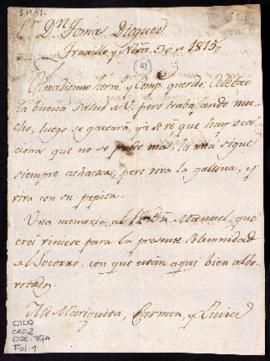 Sr. Dn. Tomas Dieguez
Truxillo y Novre. 30 de 1815,
Amadisimo herm. y Comp. querido: Celebro
la buena salud de V. pero trabajando mu-
cho, luego se gastará, ya se vé que hay oca-
ciones que no se puede mas, la mia sigue
siempre achacosa, pero viva la gallina, y
viva con su pepita.
Una memoria al Manuel, que
crei viniese para la presente solemnidad
al Socorro, con que estan aqui bien albo-
rotados.
Mi Mariquita, Carmen, y
Fol: 1